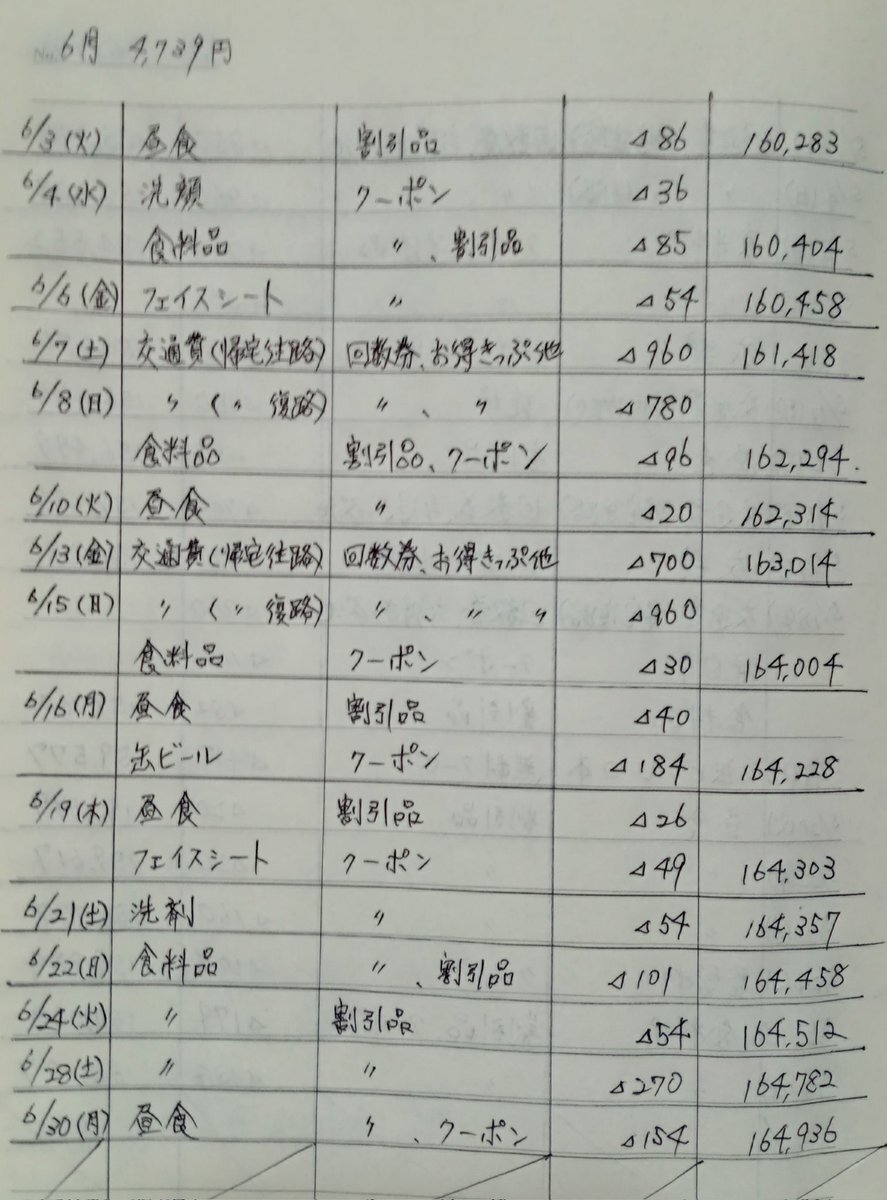 6月 4,739円
6/3(火) 昼食 割引品 ⊿86 160,283
6/4(水) 洗顔 クーポン ⊿36
食料品 〃、割引品 ⊿85 160,404
6/6(金) フェイスシート 〃 ⊿54 160,458
6/7(土) 交通費(帰宅往路) 回数券、お得きっぷ他 ⊿960 161,418
6/8(日) 〃 (〃 復路) 〃、〃 ⊿780
食料品 割引品、クーポン ⊿96 162,294.
6/10(火) 昼食 〃 ⊿20 162,314
6/13(金) 交通費(帰宅往路) 回数券、お得きっぷ他 ⊿700 163,014
6/15(日) 〃 (〃 復路) 〃、〃 〃 ⊿960
食料品 クーポン ⊿30 164,004
6/16(月) 昼食 割引品 ⊿40
缶ビール クーポン ⊿184 164,228
6/19(木) 昼食 割引品 ⊿26
フェイスシート クーポン ⊿49 164,303
6/21(土) 洗剤 〃 ⊿54 164,357
6/22(日) 食料品 〃、割引品 ⊿101 164,458
6/24(火) 〃 割引品 ⊿54 164,512
6/28(土) 〃 〃 ⊿270 164,782
6/30(月) 昼食 〃、クーポン ⊿154 164,936